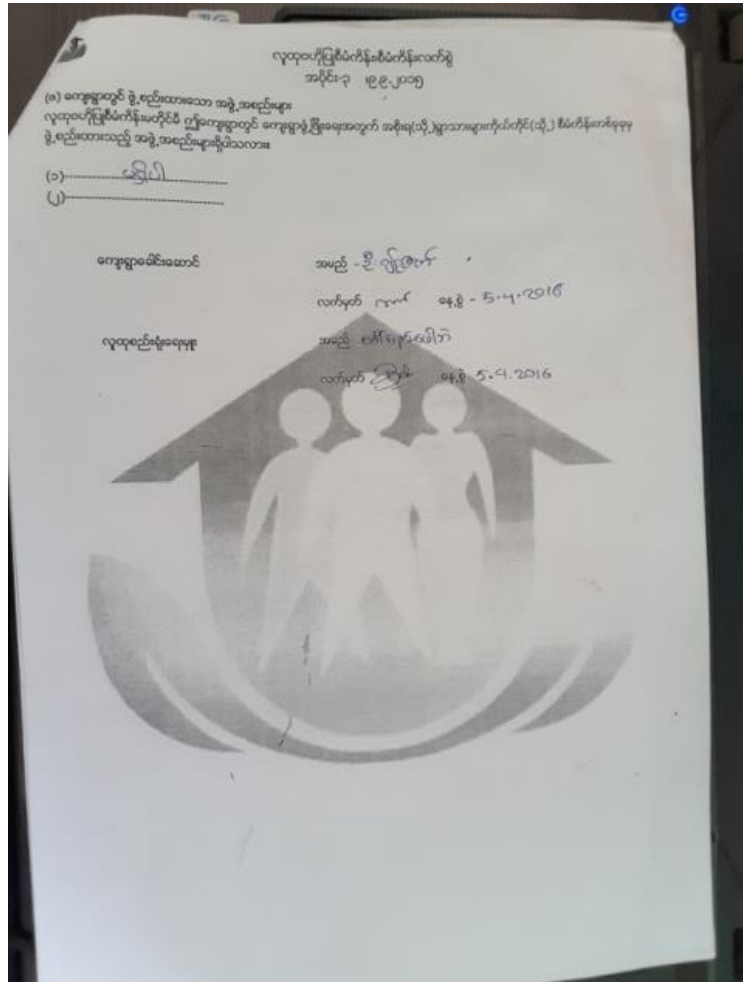 လူထုဗဟိုပြုစီမံကိန်းစီမံကိန်းလက်စွဲ
အပိုင်း-၃ ၊၉.၉.၂၀၁၅
(ဇ) ကျေးရွာတွင် ဖွဲ့စည်းထားသော အဖွဲ့အစည်းများ
လူထုဗဟိုပြုစီမံကိန်းမတိုင်မီ ဤကျေးရွာတွင် ကျေးရွာဖွံ့ဖြိုးရေးအတွက် အစိုးရ(သို့)ရွာသားများကိုယ်တိုင်(သို့) စီမံကိန်းတစ်ခုခုမှ
ဖွဲ့စည်းထားသည့် အဖွဲ့အစည်းများရှိပါသလား။
(၁) မရှိပါ
(၂)
ကျေးရွာခေါင်းဆောင် အမည် - ဦး
လက်မှတ် နေ့စွဲ - 5.4.2016
လူထုစည်းရုံးရေးမှူး အမည်
လက်မှတ် နေ့စွဲ 5.4.2016